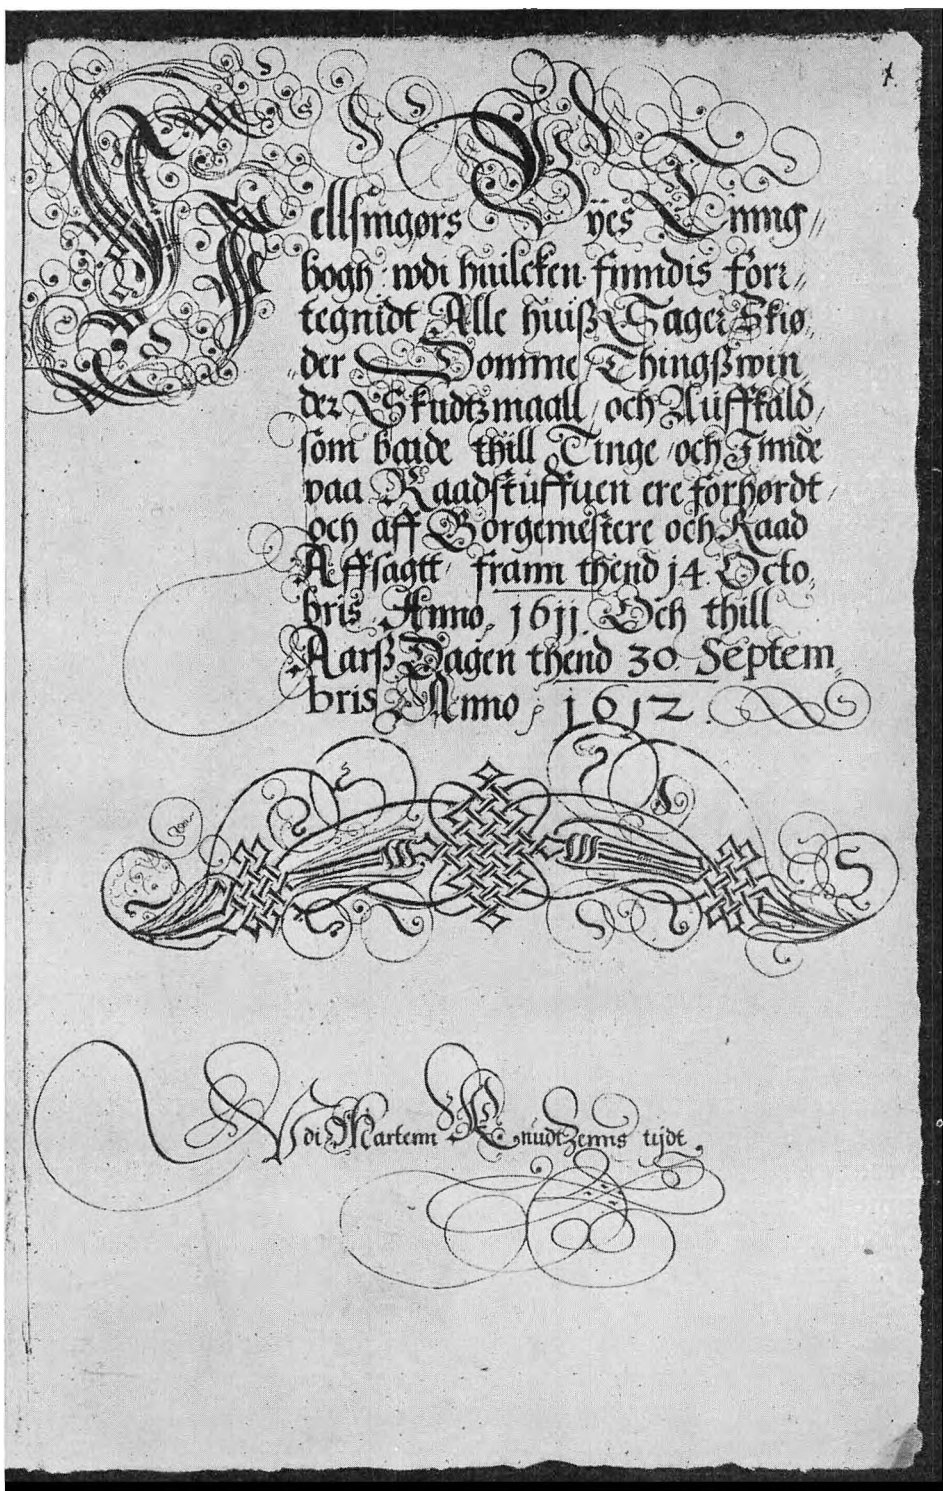 1.
Hellsingørs Byes Tinng//
bogh: wdi huilcken finndis forr/
tegnidt Alle huiß Sager Skiø/
der Domme Thingßwin
der Skudtzmaall / och Auffkald /
som baide thill Tinge / och Innde
paa Raadstuffuen ere forhørdt /
och aff Borgemestere och Raad
Affsagtt / frann thend 14 Octo/
bris Anno. 1611. Och thill
Aarß Dagen thend 30 Septem/
bris Anno / 1612.
Vdi Martenn Knudtzenns tijdt